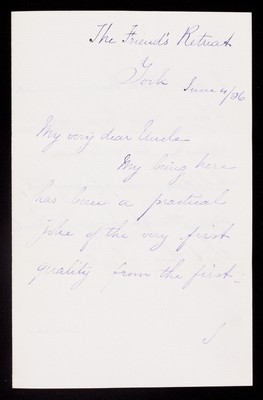 The Friend's Retreat
York June 4/06
My very dear Uncle
My being here
has been a practical
joke of the very first
quality from the first: